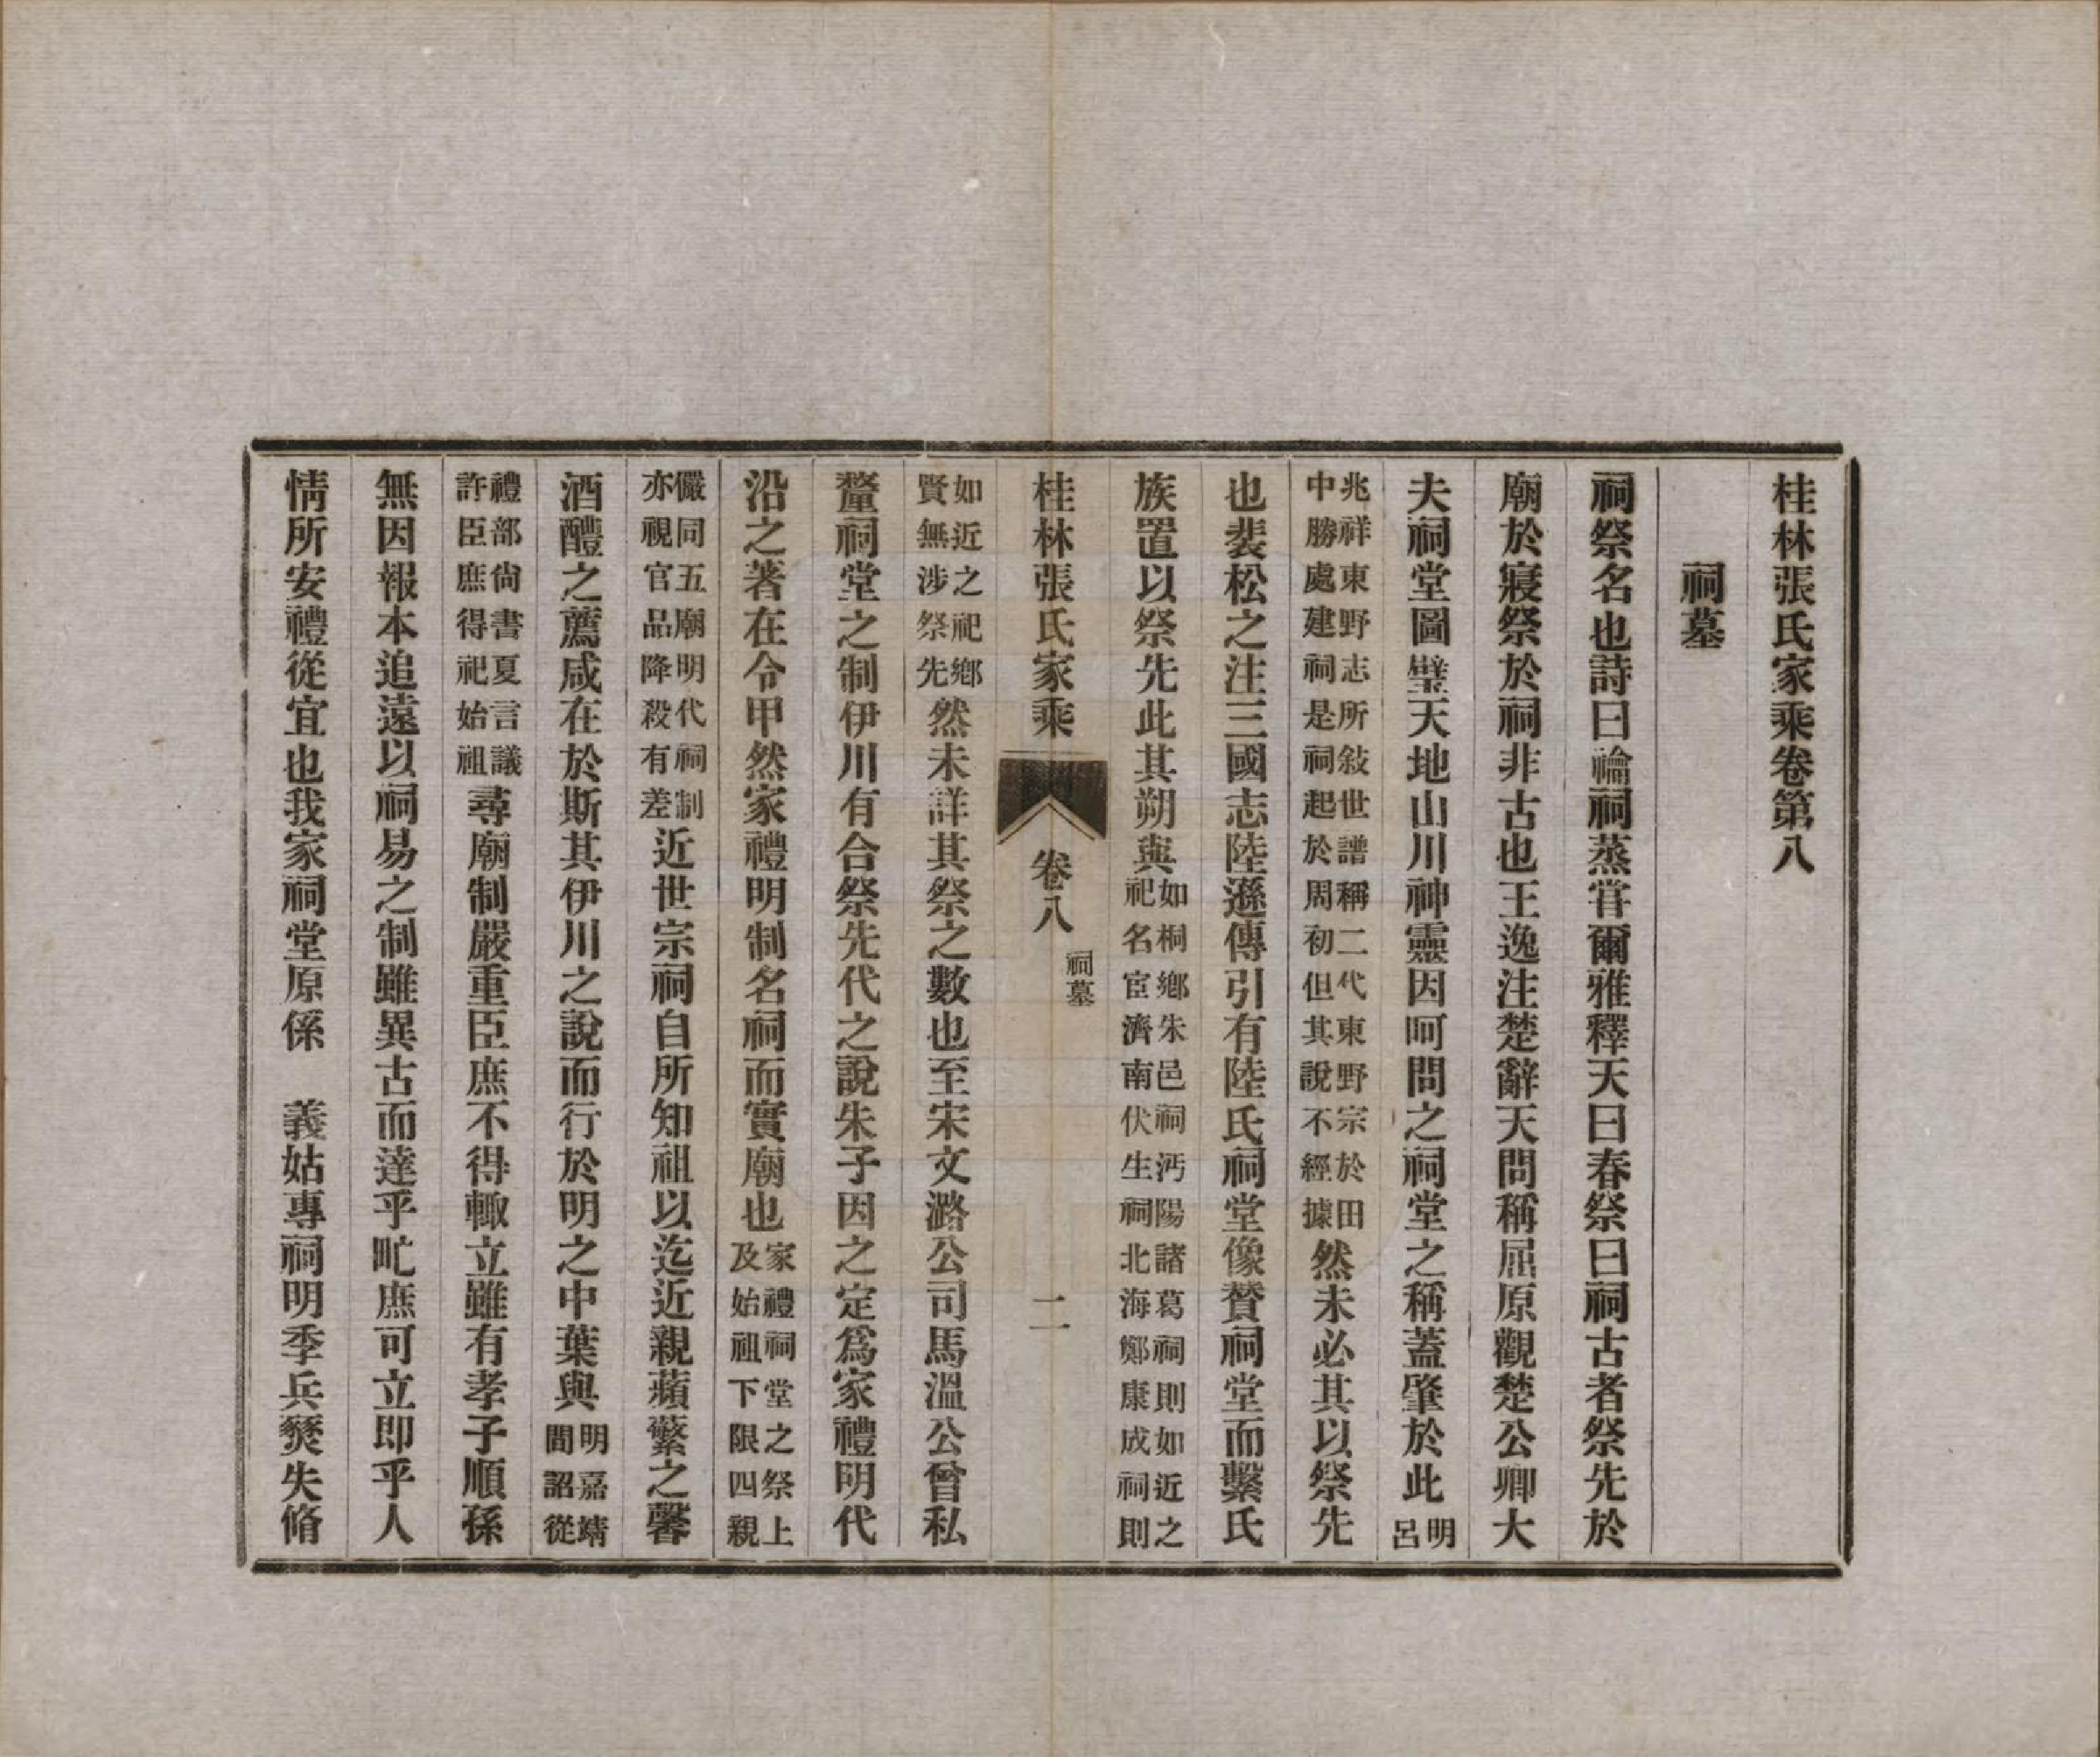 桂林張氏家乘卷第八
祠墓
祠祭名也詩曰禴祠蒸甞爾雅釋天曰春祭曰祠古者祭先於
廟於寢祭於祠非古也王逸注楚辭天問稱屈原觀楚公卿大
夫祠堂圖壁天地山川神靈因呵問之祠堂之稱蓋肇於此明呂
兆祥東野志所敍世譜稱二代東野宗於田中勝處建祠是祠起於周初但其說不經據然未必其以祭先
也裴松之注三國志陸遜傳引有陸氏祠堂像贊祠堂而繫氏
族置以祭先此其朔與如桐鄉朱邑祠沔陽諸葛祠則如近之祀名宦濟南伏生祠北海鄭康成祠則
如近之祀鄉賢無涉祭先然未詳其祭之數也至宋文潞公司馬溫公曾私
釐祠堂之制伊川有合祭先代之說朱子因之定爲家禮明代
沿之著在令甲然家禮明制名祠而實廟也家禮祠堂之祭上及始祖下限四親
儼同五廟明代祠制亦視官品降殺有差近世宗祠自所知祖以迄近親蘋蘩之馨
酒醴之薦咸在於斯其伊川之說而行於明之中葉與明嘉靖間詔從
禮部尙書夏言議許臣庶得祀始祖尋廟制嚴重臣庶不得輙立雖有孝子順孫
無因報本追遠以祠易之制雖異古而達乎甿庶可立即乎人
情所安禮從宜也我家祠堂原係　義姑專祠明季兵燹失脩
桂林張氏家乘
卷八
祠墓
一